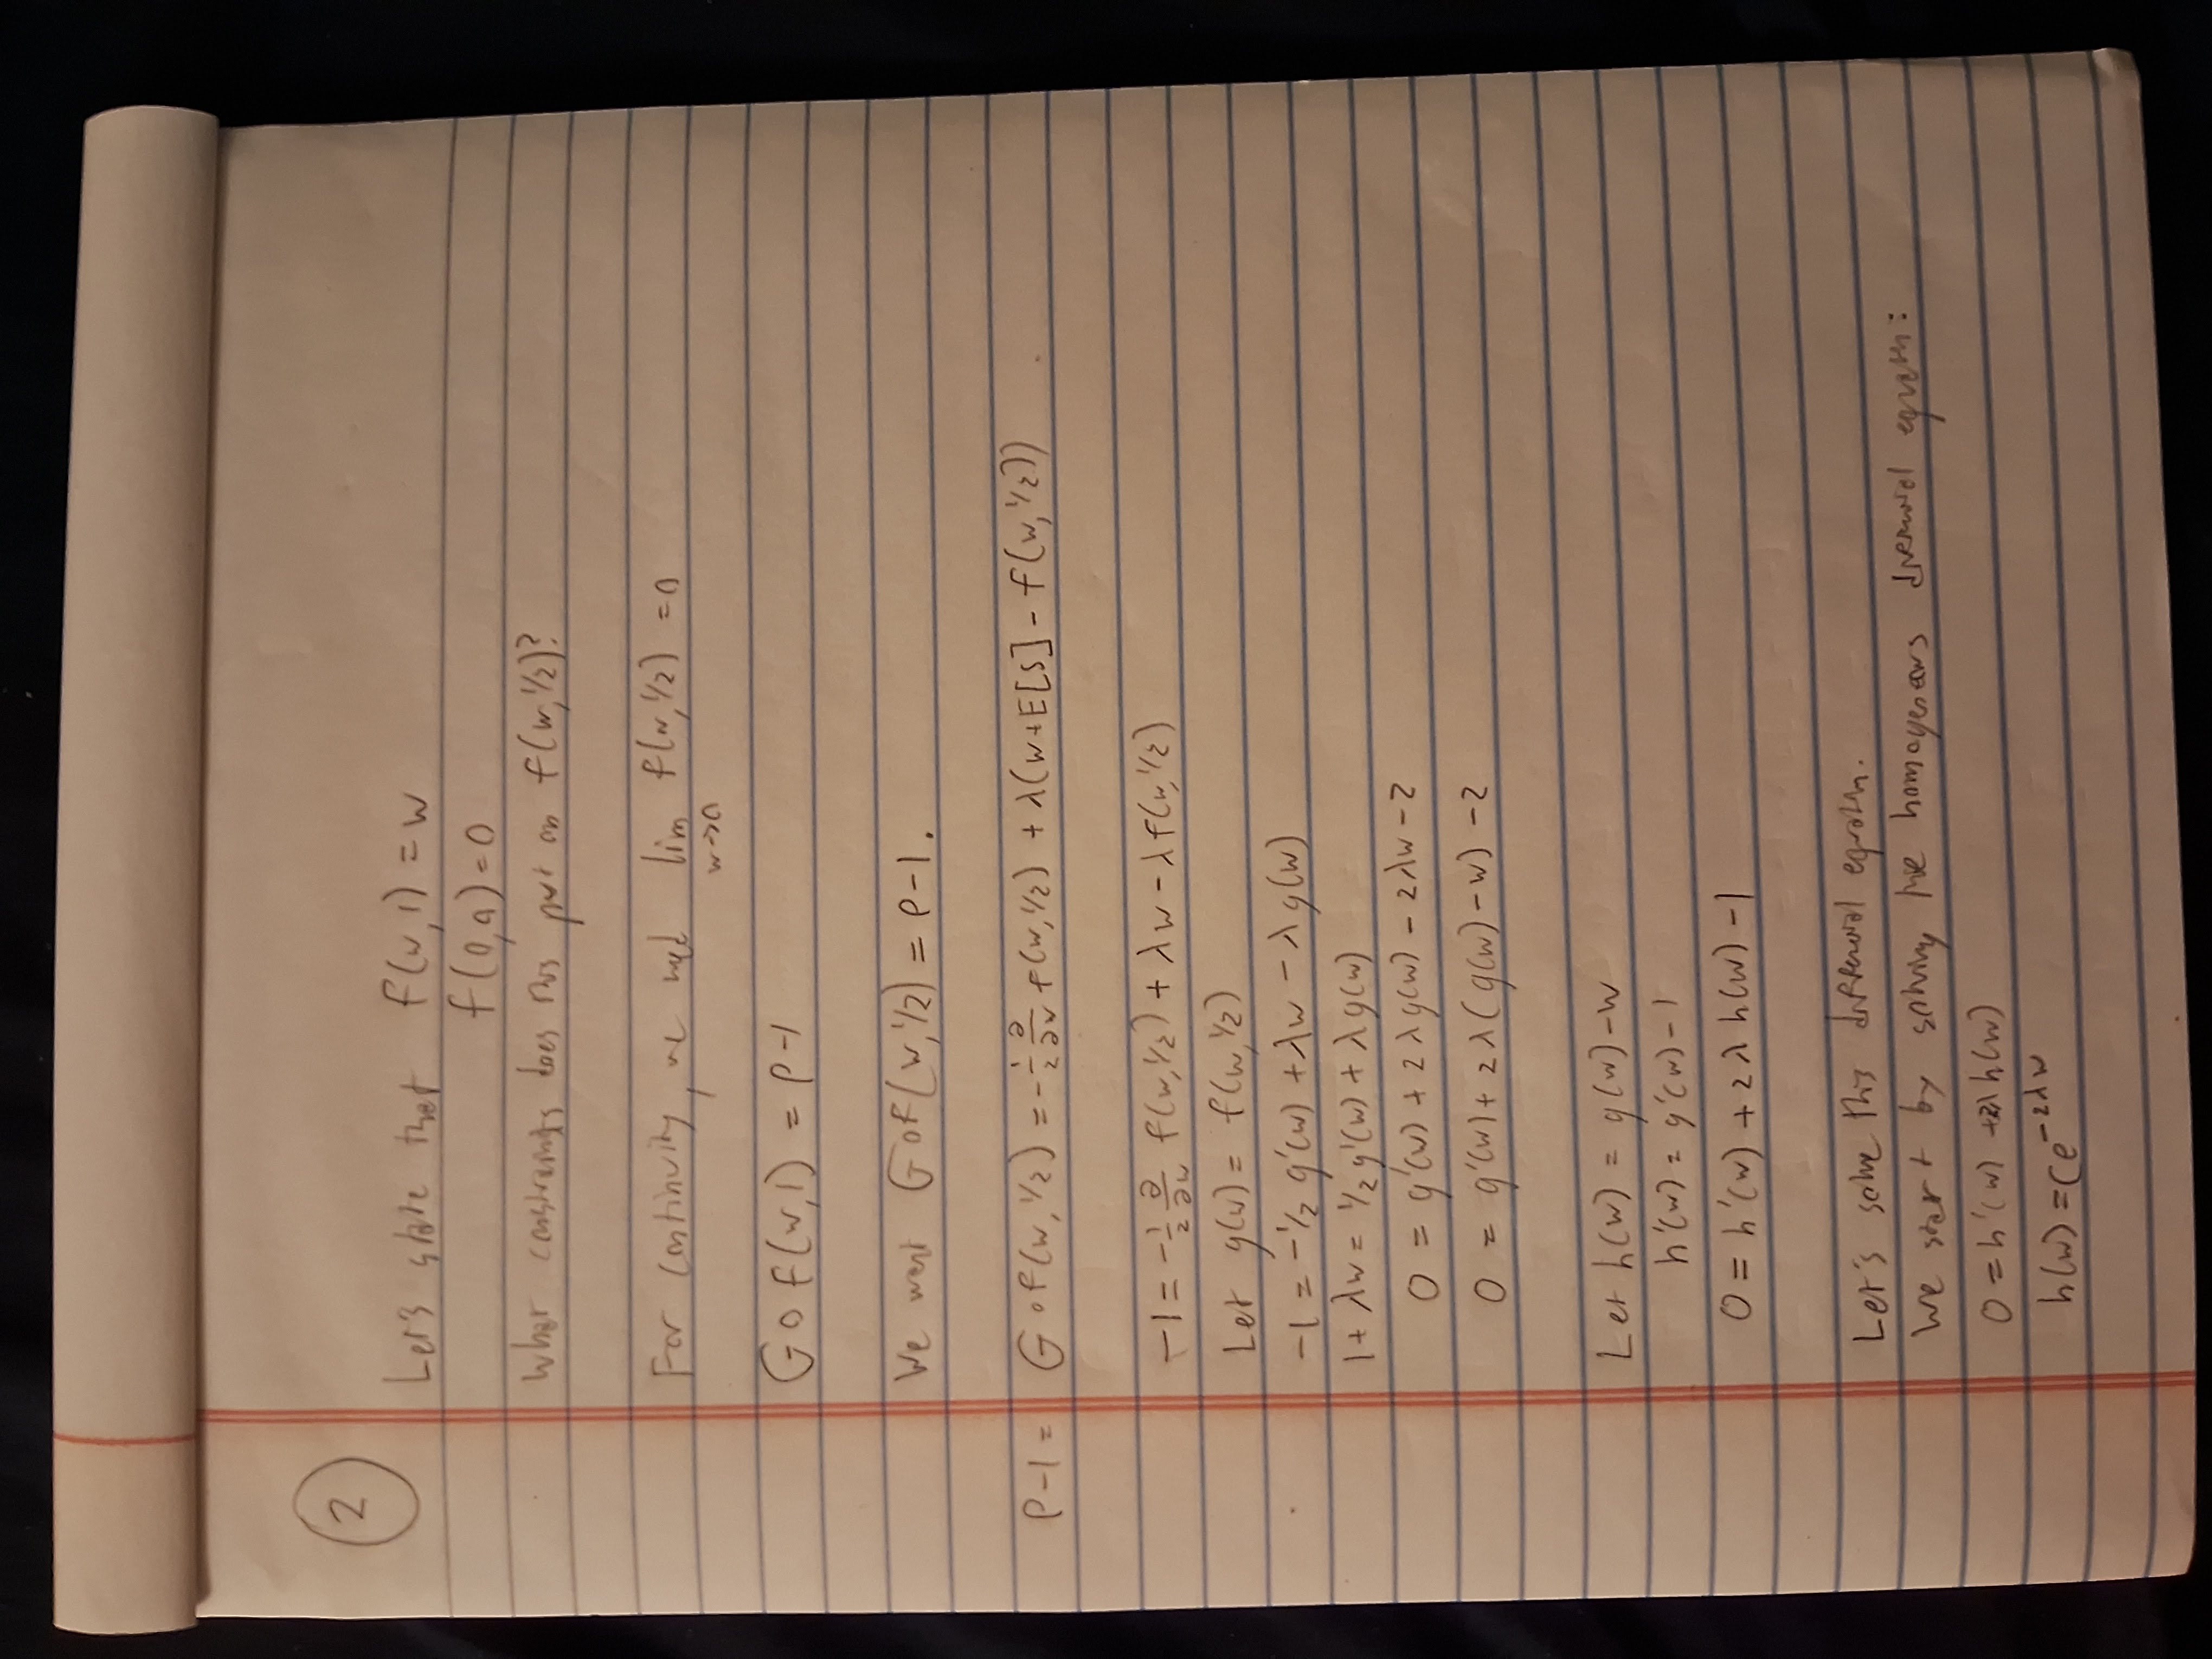 2
Let's state that f(w,1) = w
f(0,a) = 0
What constraints does this put on f(w,1/2)?
For continuity, we need lim_{w→0} f(w,1/2) = 0
G∘f(w,1) = ρ-1
We want G∘f(w,1/2) = ρ-1.
ρ-1 = G∘f(w,1/2) = -1/2 ∂/∂w f(w,1/2) + λ(w+E[S] - f(w,1/2))
-1 = -1/2 ∂/∂w f(w,1/2) + λw - λf(w,1/2)
Let g(w) = f(w,1/2)
-1 = -1/2 g'(w) + λw - λg(w)
1 + λw = 1/2 g'(w) + λg(w)
0 = g'(w) + 2λg(w) - 2λw - 2
0 = g'(w) + 2λ(g(w) - w) - 2
Let h(w) = g(w) - w
h'(w) = g'(w) - 1
0 = h'(w) + 2λh(w) - 1
Let's solve this differential equation.
We start by solving the homogeneous differential equation:
0 = h'(w) + 2λh(w)
h(w) = Ce^{-2λw}